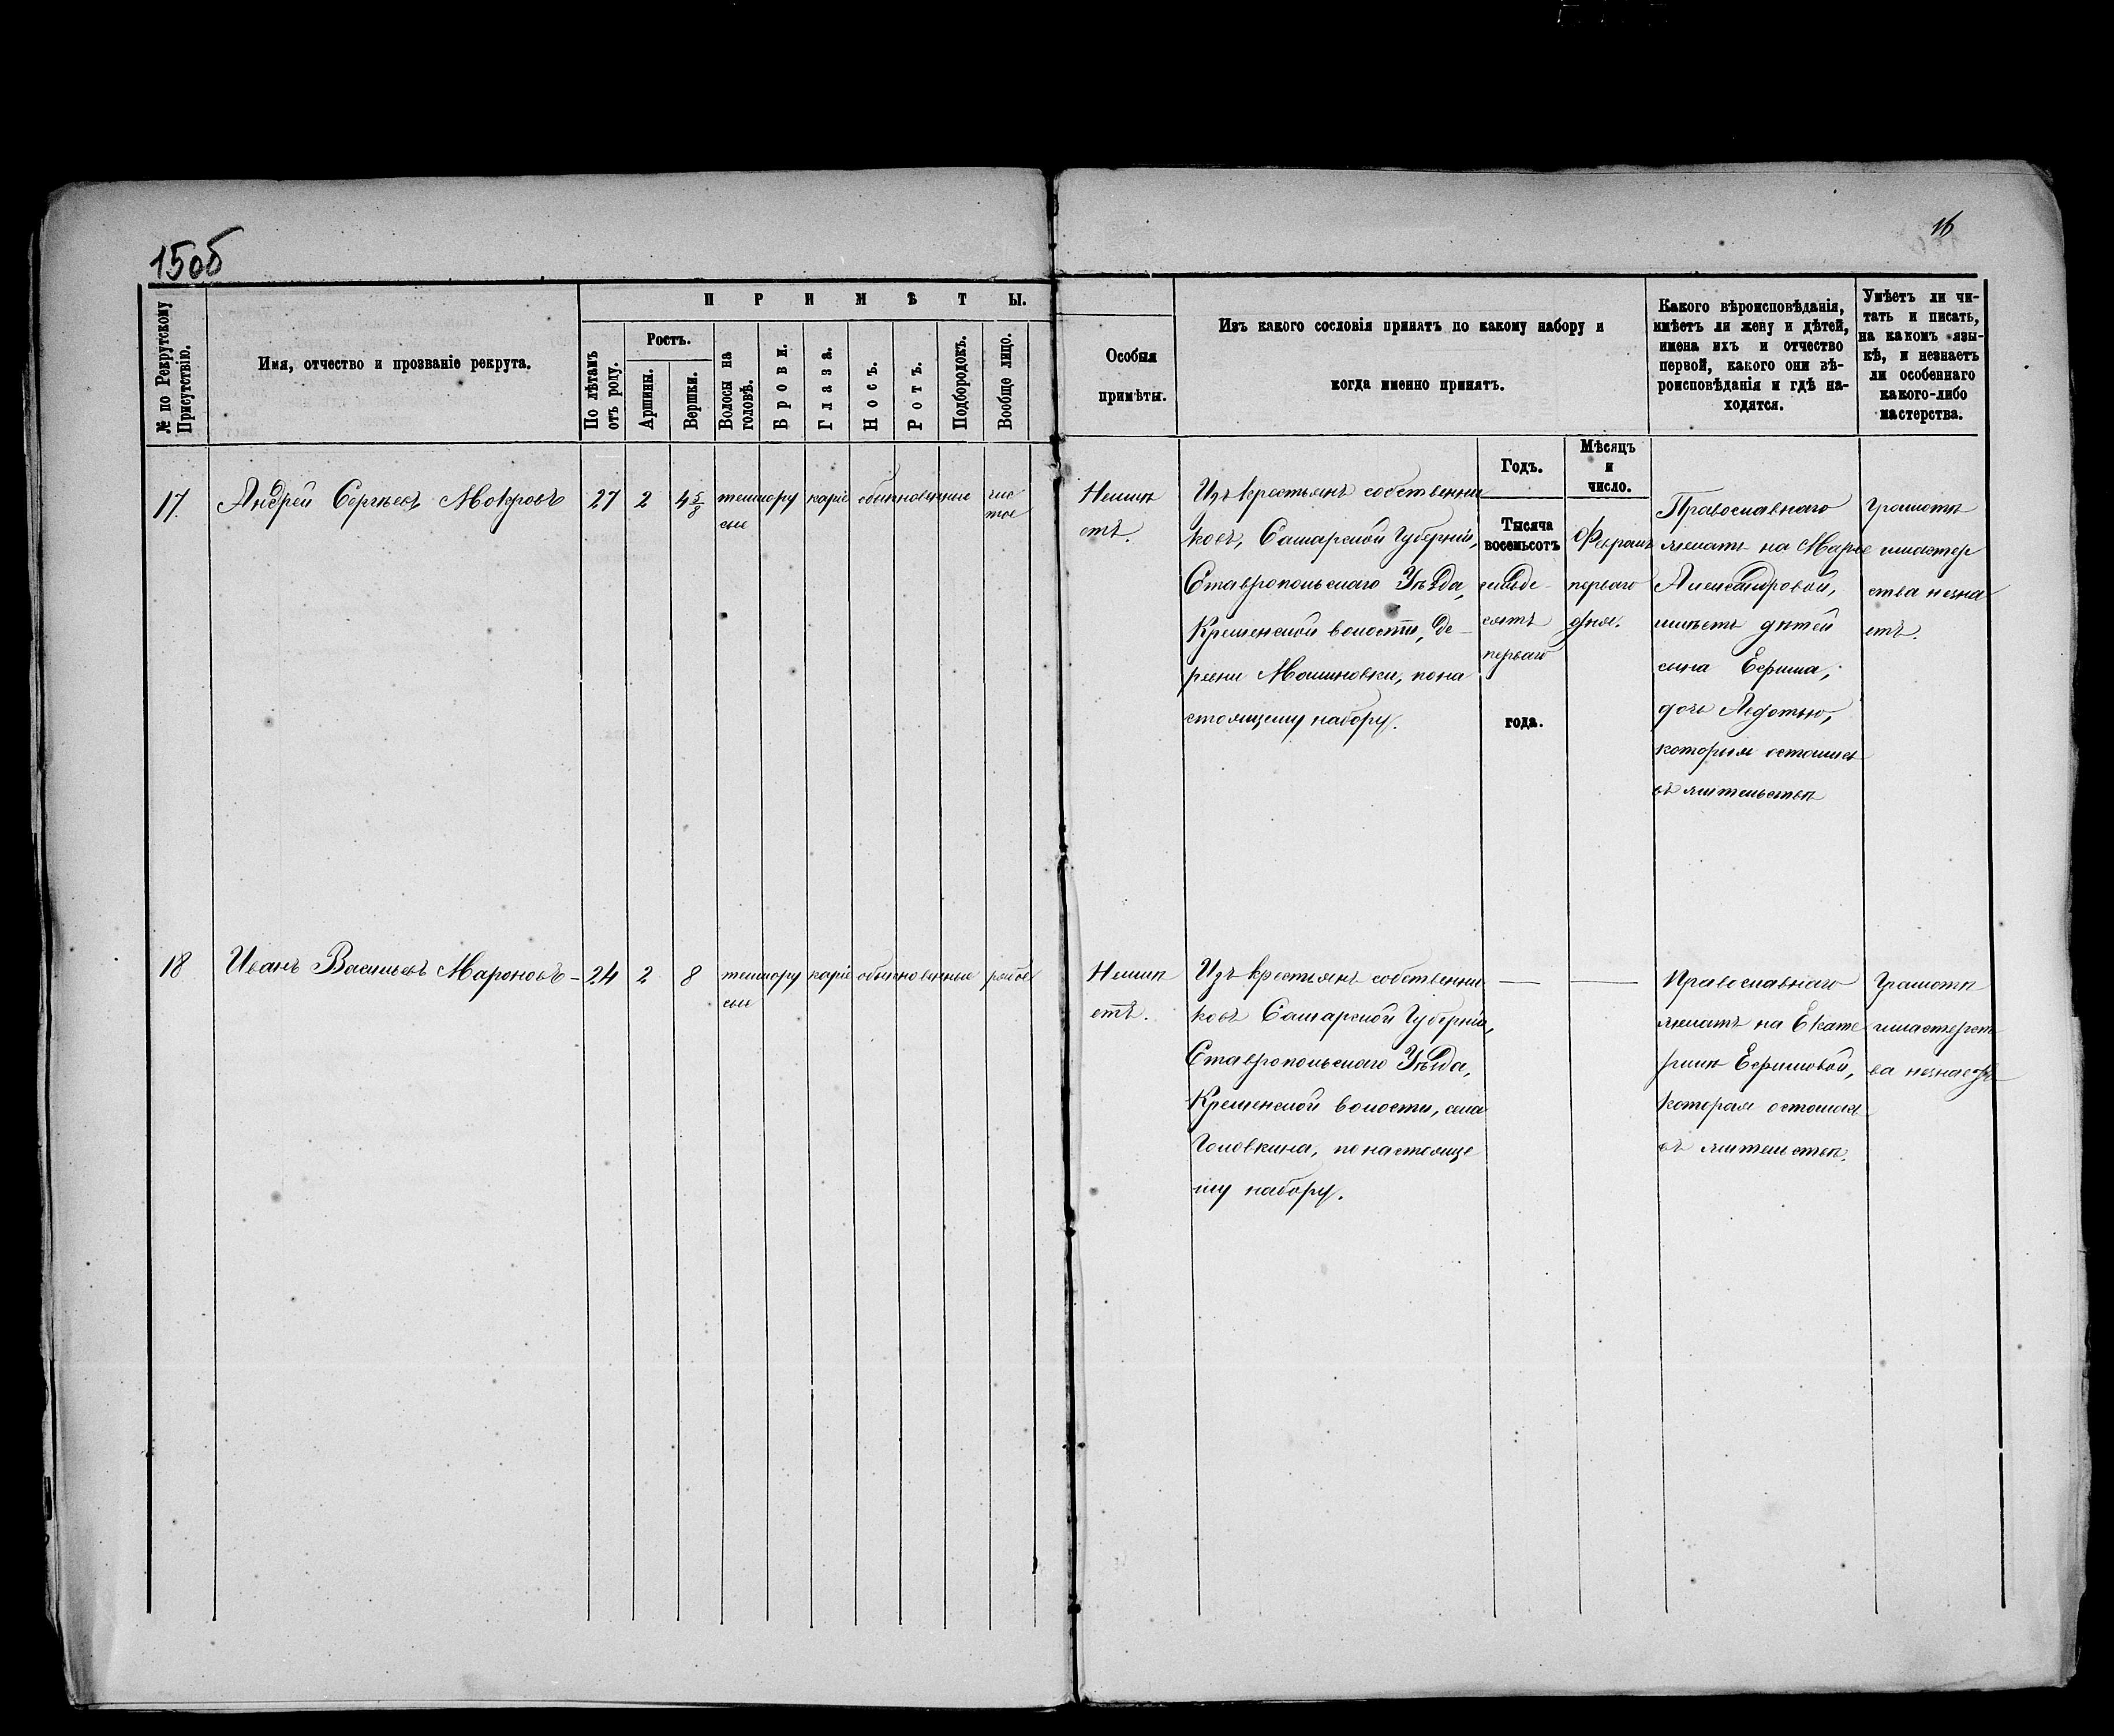 150б
16
№ по Рекрутскому
Присутствію.
Имя, отчество и прозваніе рекрута.
ПРИМѢТЫ.
По лѣтамъ
отъ роду.
Ростъ.
Аршины.
Вершки.
Волосы на
головѣ.
Брови.
Глаза.
Носъ.
Ротъ.
Подбородокъ.
Вообще лицо.
Особыя
примѣты.
Изъ какого сословія принятъ по какому набору и
когда именно принятъ.
Какого вѣроисповѣданія,
имѣетъ ли жену и дѣтей,
имена ихъ и отчество
первой, какого они вѣ-
роисповѣданія и гдѣ на-
ходятся.
Умѣетъ ли чи-
тать и писать,
на какомъ язы-
кѣ, и незнаетъ
ли особеннаго
какого-либо
мастерства.
Годъ.
Мѣсяцъ
и
число.
17.
Андрей Сергѣевъ Мокровъ
27
2
4 5/8
темнору
сые
каріе
обыкновенные
чис
тое
Неимѣ
етъ.
Изъ крестьянъ собственни
ковъ, Самарской Губерніи,
Ставропольскаго Уѣзда,
Кременской волости, де-
ревни Моисновки, пона
стоящему набору.
Тысяча
восемьсотъ
семьде-
сятъ
перваго
года.
Февраля
перваго
дня.
Православнаго
женатъ на Марье
Александровой,
имѣетъ дѣтей
сына Ефима,
дочь Авдотью,
которыя остались
въ жительствѣ
Грамотѣ
имастер
ства незна
етъ.
18
Иванъ Васильевъ Мароновъ -
24
2
8
темнору
сые
каріе
обыкновенные
рябое
Неимѣ
етъ.
Изъ крестьянъ собственни
ковъ Самарской Губерніи,
Ставропольскаго Уѣзда,
Кременской волости, села
Головкина, понастояще
му набору.
—
—
Православнаго
женатъ на Екате
ринѣ Ефимовой,
которая осталась
въ жительствѣ.
Грамотѣ
имастерст
ва незнаетъ